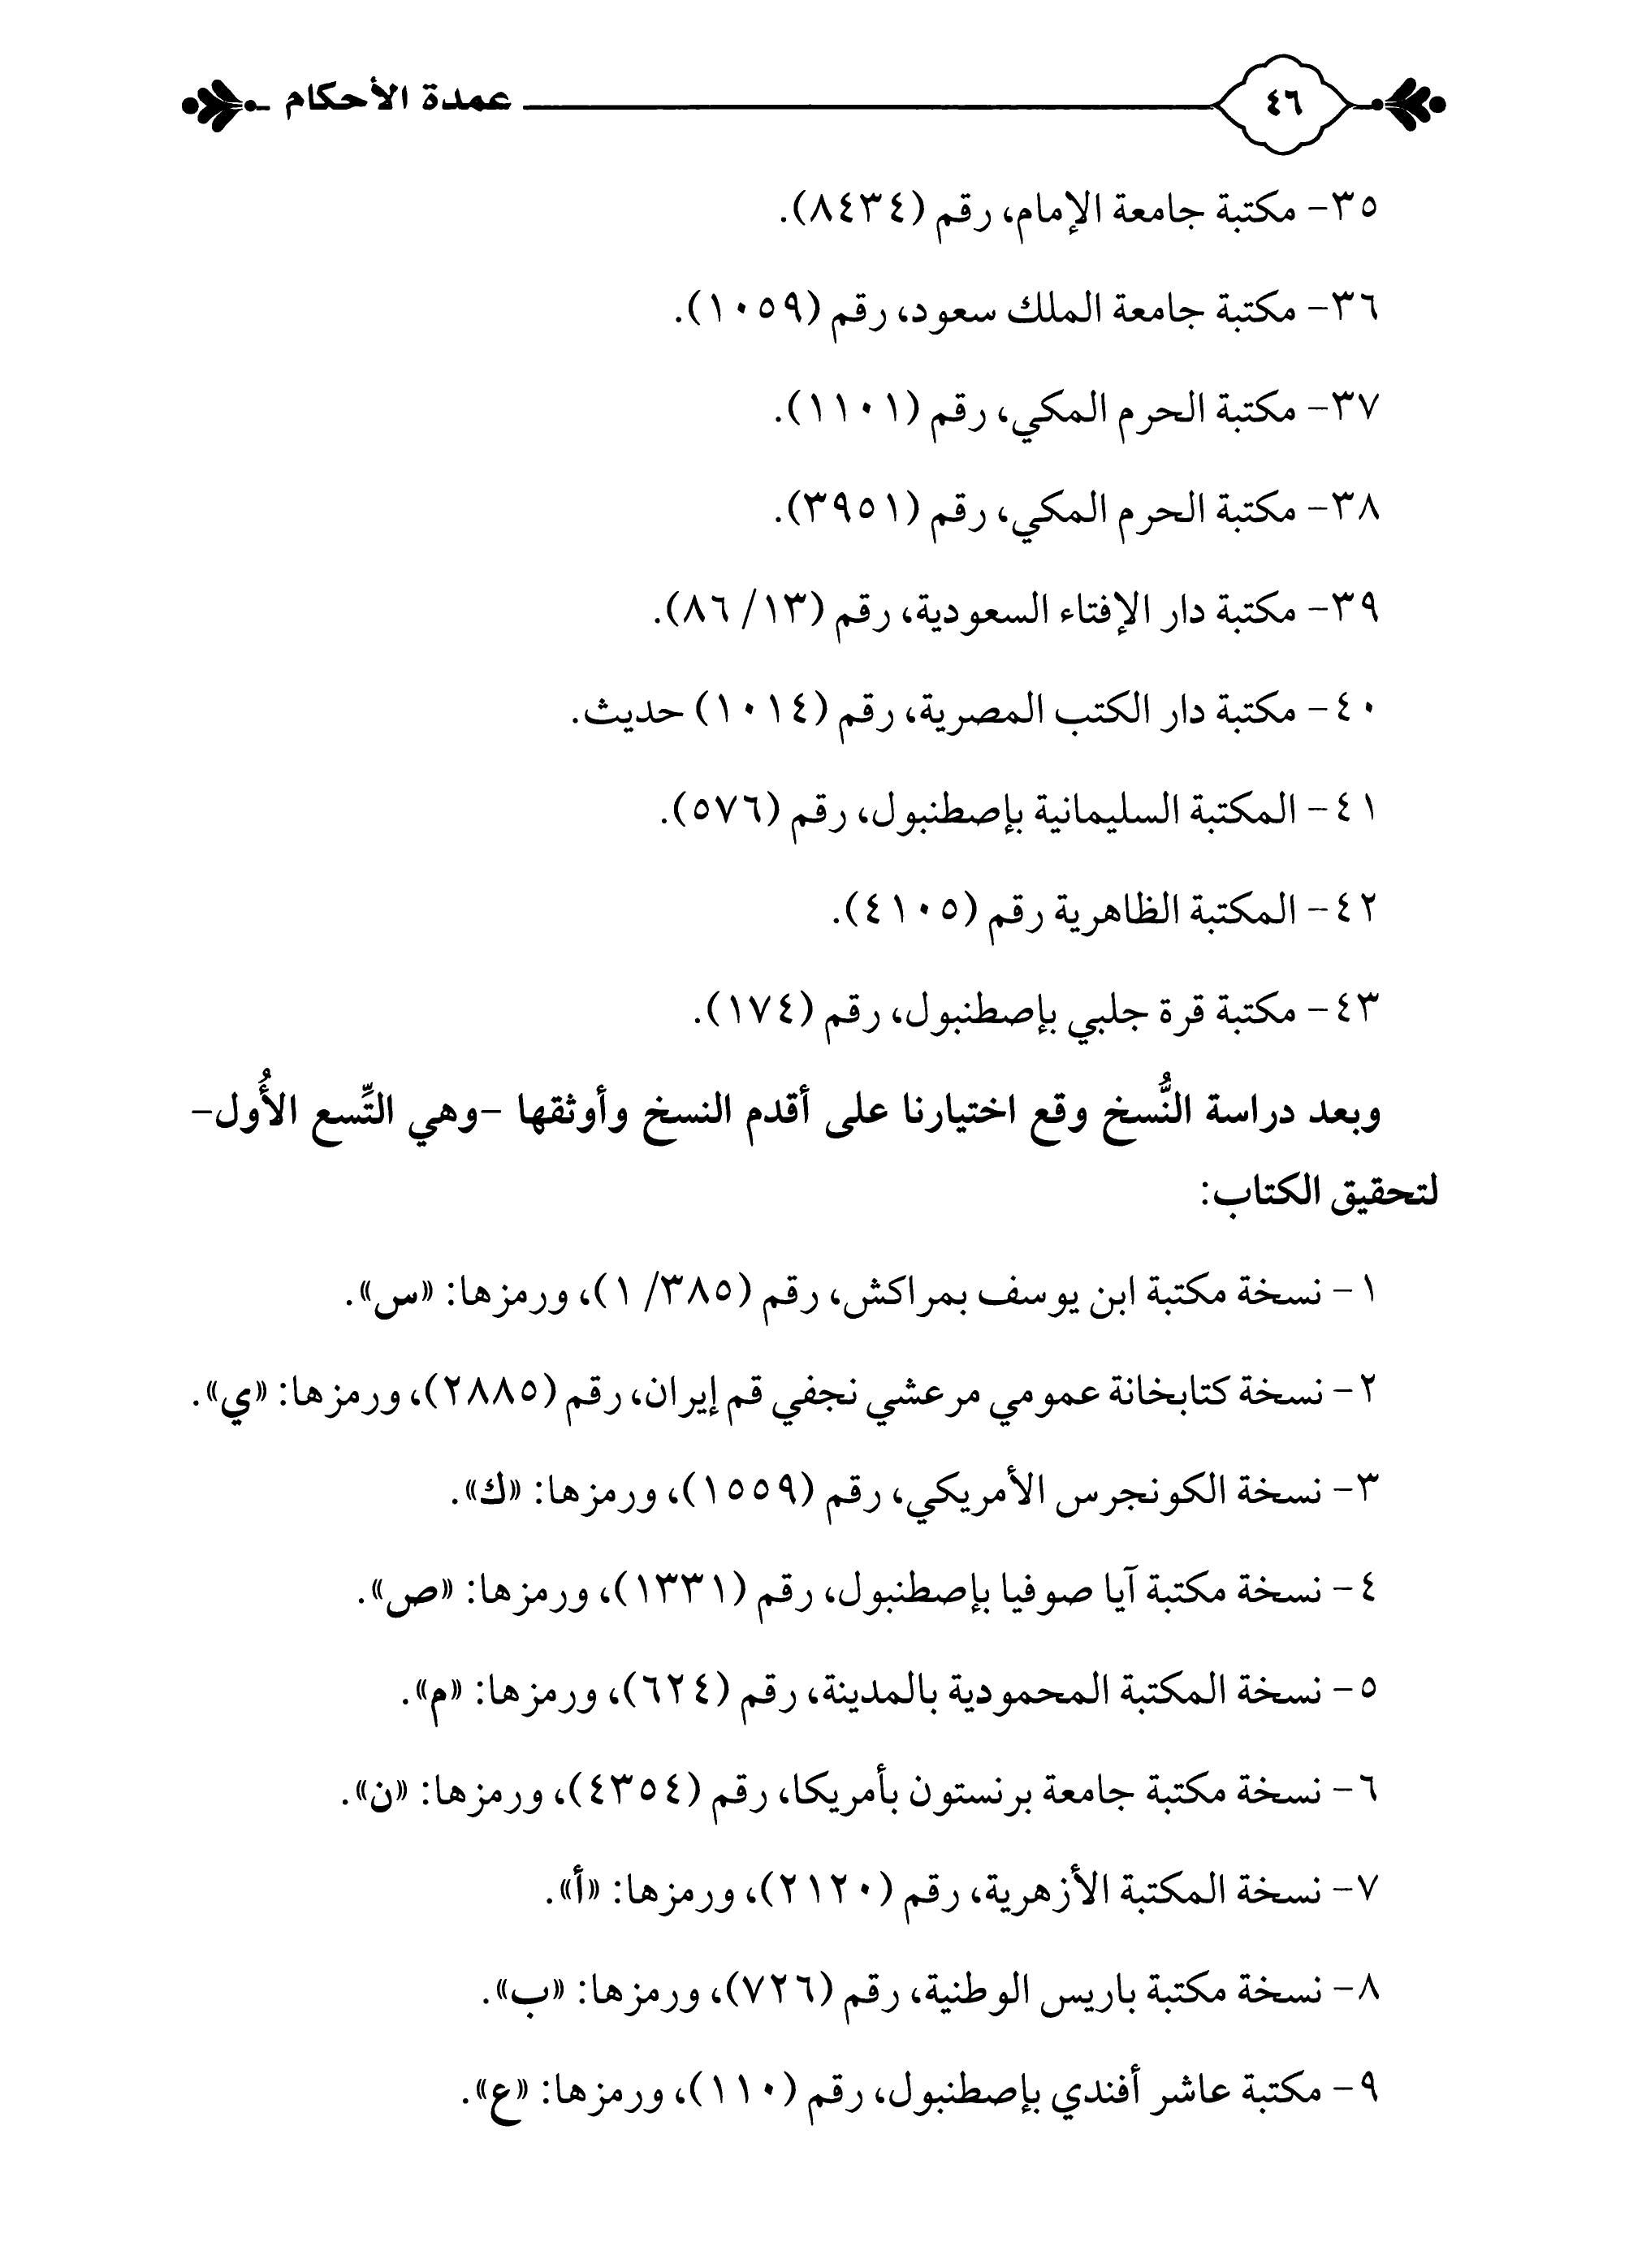 ٤٦ عمدة الأحكام
٣٥- مكتبة جامعة الإمام، رقم (٨٤٣٤).
٣٦- مكتبة جامعة الملك سعود، رقم (١٠٥٩).
٣٧- مكتبة الحرم المكي، رقم (١١٠١).
٣٨- مكتبة الحرم المكي، رقم (٣٩٥١).
٣٩- مكتبة دار الإفتاء السعودية، رقم (١٣/ ٨٦).
٤٠- مكتبة دار الكتب المصرية، رقم (١٠١٤) حديث.
٤١- المكتبة السليمانية بإصطنبول، رقم (٥٧٦).
٤٢- المكتبة الظاهرية رقم (٤١٠٥).
٤٣- مكتبة قرة جلبي بإصطنبول، رقم (١٧٤).
وبعد دراسة النُّسخ وقع اختيارنا على أقدم النسخ وأوثقها -وهي التِّسع الأُول-
لتحقيق الكتاب:
١- نسخة مكتبة ابن يوسف بمراكش، رقم (٣٨٥/ ١)، ورمزها: «س».
٢- نسخة كتابخانة عمومي مرعشي نجفي قم إيران، رقم (٢٨٨٥)، ورمزها: «ي».
٣- نسخة الكونجرس الأمريكي، رقم (١٥٥٩)، ورمزها: «ك».
٤- نسخة مكتبة آيا صوفيا بإصطنبول، رقم (١٣٣١)، ورمزها: «ص».
٥- نسخة المكتبة المحمودية بالمدينة، رقم (٦٢٤)، ورمزها: «م».
٦- نسخة مكتبة جامعة برنستون بأمريكا، رقم (٤٣٥٤)، ورمزها: «ن».
٧- نسخة المكتبة الأزهرية، رقم (٢١٢٠)، ورمزها: «أ».
٨- نسخة مكتبة باريس الوطنية، رقم (٧٢٦)، ورمزها: «ب».
٩- مكتبة عاشر أفندي بإصطنبول، رقم (١١٠)، ورمزها: «ع».